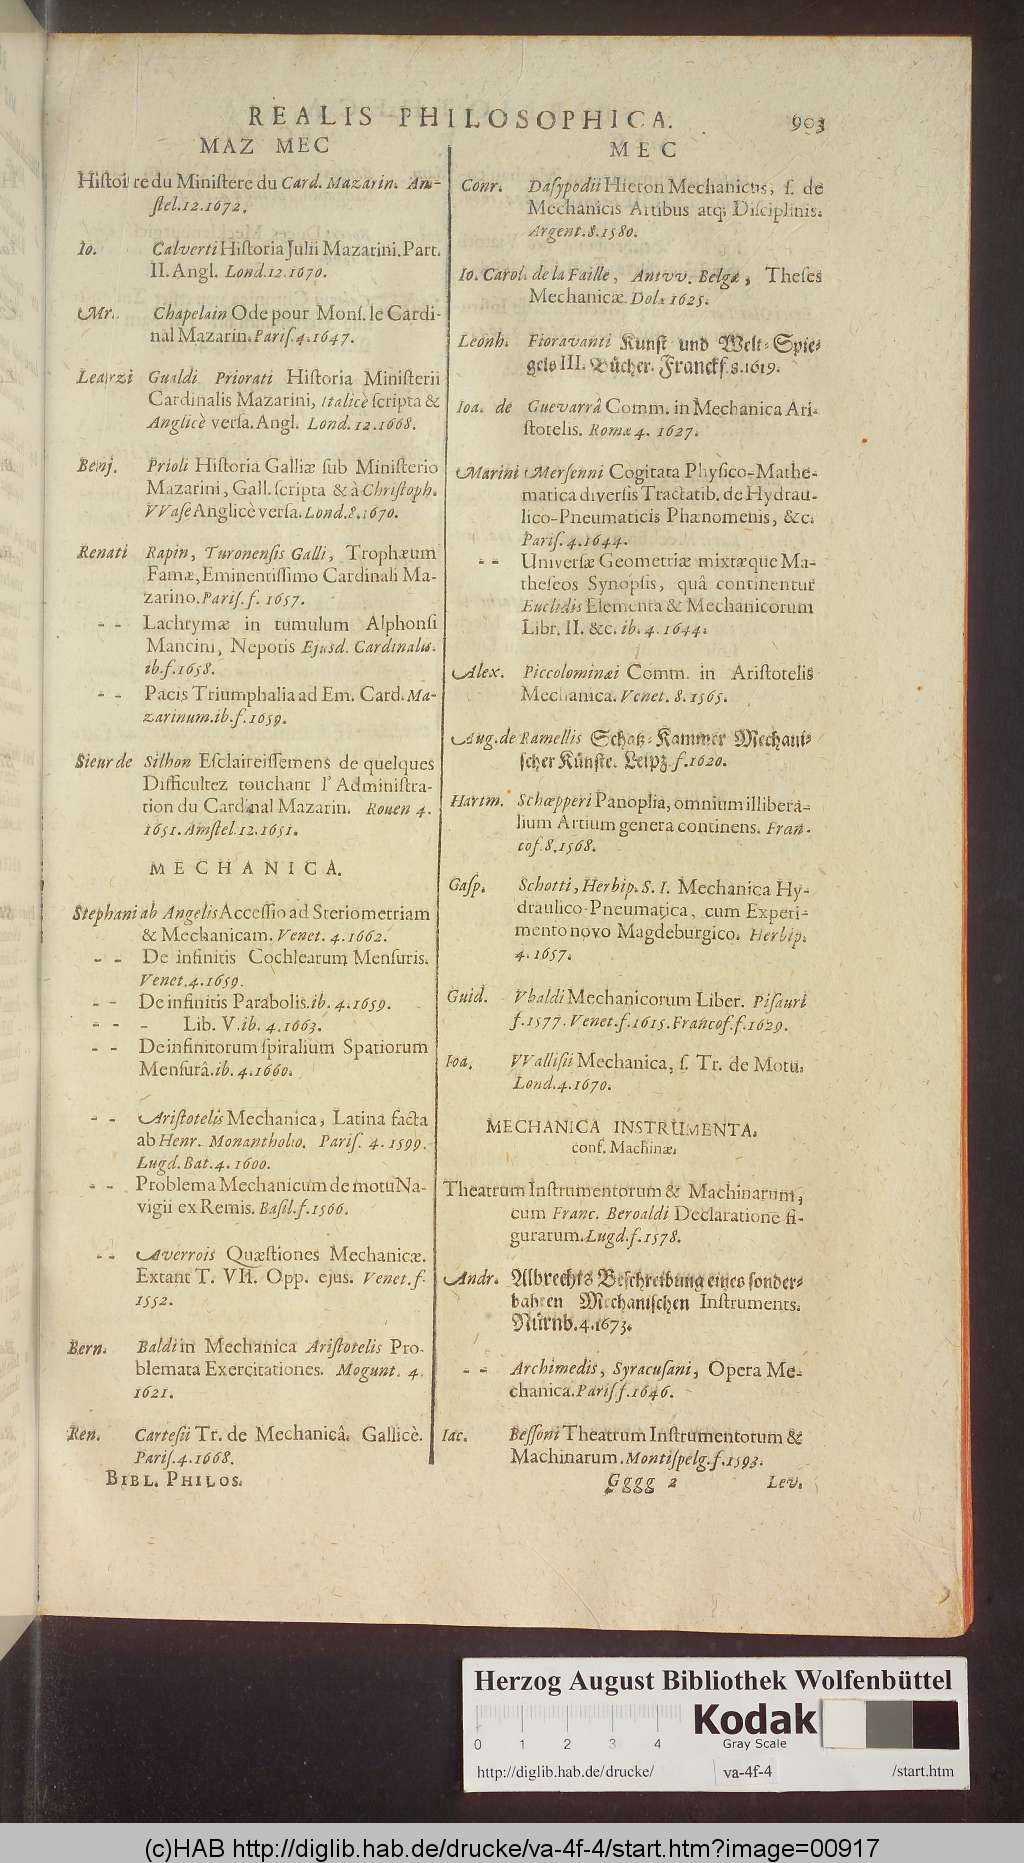 REALIS PHILOSOPHICA. 903
MAZ MEC
Histoire du Ministere du Card. Mazarin. Am-
stel. 12. 1672.
Io. Calverti Historia Julii Mazarini. Part.
II. Angl. Lond. 12. 1670.
Mr. Chapelain Ode pour Mons. le Cardi-
nal Mazarin. Paris. 4. 1647.
Learzi Gualdi Priorati Historia Ministerii
Cardinalis Mazarini, Italicè scripta &
Anglicè versa. Angl. Lond. 12. 1668.
Benj. Prioli Historia Galliæ sub Ministerio
Mazarini, Gall. scripta & à Christoph.
VVase Anglicè versa. Lond. 8. 1670.
Renati Rapin, Turonensis Galli, Trophæum
Famæ, Eminentissimo Cardinali Ma-
zarino. Paris. f. 1657.
- - Lachrymæ in tumulum Alphonsi
Mancini, Nepotis Ejusd. Cardinalis.
ib. f. 1658.
- - Pacis Triumphalia ad Em. Card. Ma-
zarinum. ib. f. 1659.
Sieur de Silhon Esclaireissemens de quelques
Difficultez touchant l' Administra-
tion du Cardinal Mazarin. Rouen 4.
1651. Amstel. 12. 1651.
MECHANICA.
Stephani ab Angelis Accessio ad Steriometriam
& Mechanicam. Venet. 4. 1662.
- - De infinitis Cochlearum Mensuris.
Venet. 4. 1659.
- - De infinitis Parabolis. ib. 4. 1659.
- - - Lib. V. ib. 4. 1663.
- - De infinitorum spiralium Spatiorum
Mensurâ. ib. 4. 1660.
- - Aristotelis Mechanica, Latina facta
ab Henr. Monantholio. Paris. 4. 1599.
Lugd. Bat. 4. 1600.
- - Problema Mechanicum de motu Na-
vigii ex Remis. Basil. f. 1566.
- - Averrois Quæstiones Mechanicæ.
Extant T. VII. Opp. ejus. Venet. f.
1552.
Bern. Baldi in Mechanica Aristotelis Pro-
blemata Exercitationes. Mogunt. 4.
1621.
Ren. Cartesii Tr. de Mechanicâ. Gallicè.
Paris. 4. 1668.
BIBL. PHILOS.
MEC
Conr. Dasypodii Hieron Mechanicus, s. de
Mechanicis Artibus atq; Disciplinis.
Argent. 8. 1580.
Io. Carol. de la Faille, Antvv. Belgæ, Theses
Mechanicæ. Dolæ 1625.
Leonh. Fioravanti Kunst und Welt-Spie-
gels III. Bücher. Franckf. 8. 1619.
Ioa. de Guevarrâ Comm. in Mechanica Ari-
stotelis. Romæ 4. 1627.
Marini Mersenni Cogitata Physico-Mathe-
matica diversis Tractatib. de Hydrau-
lico-Pneumaticis Phænomenis, &c.
Paris. 4. 1644.
- - Universæ Geometriæ mixtæque Ma-
theseos Synopsis, quâ continentur
Euclidis Elementa & Mechanicorum
Libr. II. &c. ib. 4. 1644.
Alex. Piccolominæi Comm. in Aristotelis
Mechanica. Venet. 8. 1565.
Aug. de Ramellis Schatz-Kammer Mechani-
scher Künste. Leipz. f. 1620.
Hartm. Schœpperi Panoplia, omnium illibera-
lium Artium genera continens. Fran-
cof. 8. 1568.
Gasp. Schotti, Herbip. S. I. Mechanica Hy-
draulico-Pneumatica, cum Experi-
mento novo Magdeburgico. Herbip.
4. 1657.
Guid. Vbaldi Mechanicorum Liber. Pisauri
f. 1577. Venet. f. 1615. Francof. f. 1629.
Ioa. VVallisii Mechanica, s. Tr. de Motu.
Lond. 4. 1670.
MECHANICA INSTRUMENTA.
conf. Machinæ.
Theatrum Instrumentorum & Machinarum,
cum Franc. Beroaldi Declaratione fi-
gurarum. Lugd. f. 1578.
Andr. Albrechts Beschreibung eines sonder-
bahren Mechanischen Instruments.
Nürnb. 4. 1673.
- - Archimedis, Syracusani, Opera Me-
chanica. Paris f. 1646.
Iac. Bessoni Theatrum Instrumentorum &
Machinarum. Montispelg. f. 1593.
Gggg 2 Lev.
Herzog August Bibliothek Wolfenbüttel
0 1 2 3 4
Kodak
Gray Scale
http://diglib.hab.de/drucke/ va-4f-4 /start.htm
(c)HAB http://diglib.hab.de/drucke/va-4f-4/start.htm?image=00917